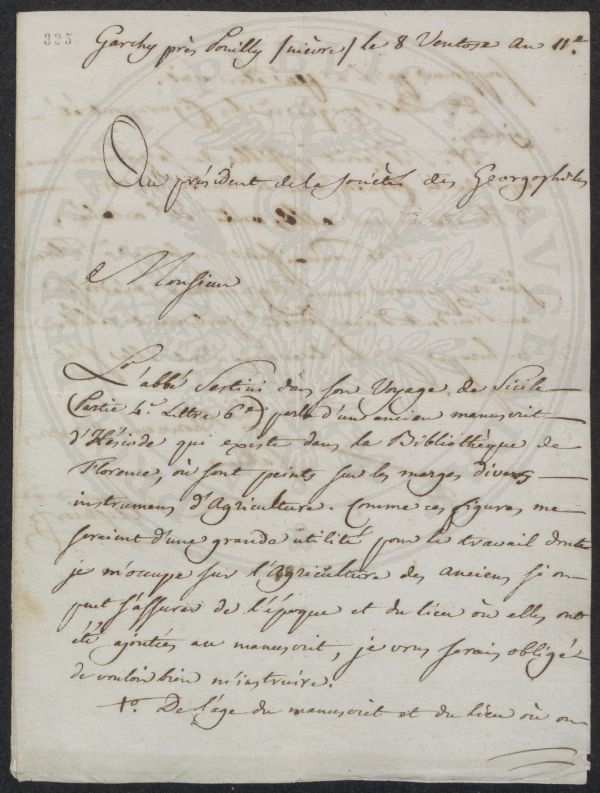 335
Garchy près Pouilly /nièvre/ le 8 Ventose an 11e.
Au président de la société des Georgophiles
Monsieur
L'abbé Sestini dans son Voyage de Sicile
(Partie 4e. Lettre 6e) parle d'un ancien manuscrit
d'Hésiode qui existe dans la Bibliothèque de
Florence, où sont peints sur les marges divers
instrumens d'Agriculture. Comme ces figures me
seraient d'une grande utilité pour le travail dont
je m'occupe sur l'Agriculture des anciens si on
peut s'assurer de l'époque et du lieu où elles ont
été ajoutées au manuscrit, je vous serais obligé
de vouloir bien m'instruire.
1o. De l'age du manuscrit et du lieu où on